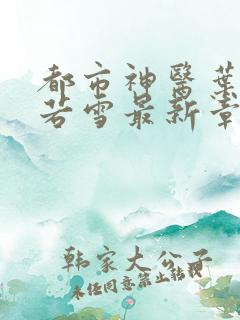 都市神醫葉
若雪最新章
韩家大公子
未经同意禁止转载